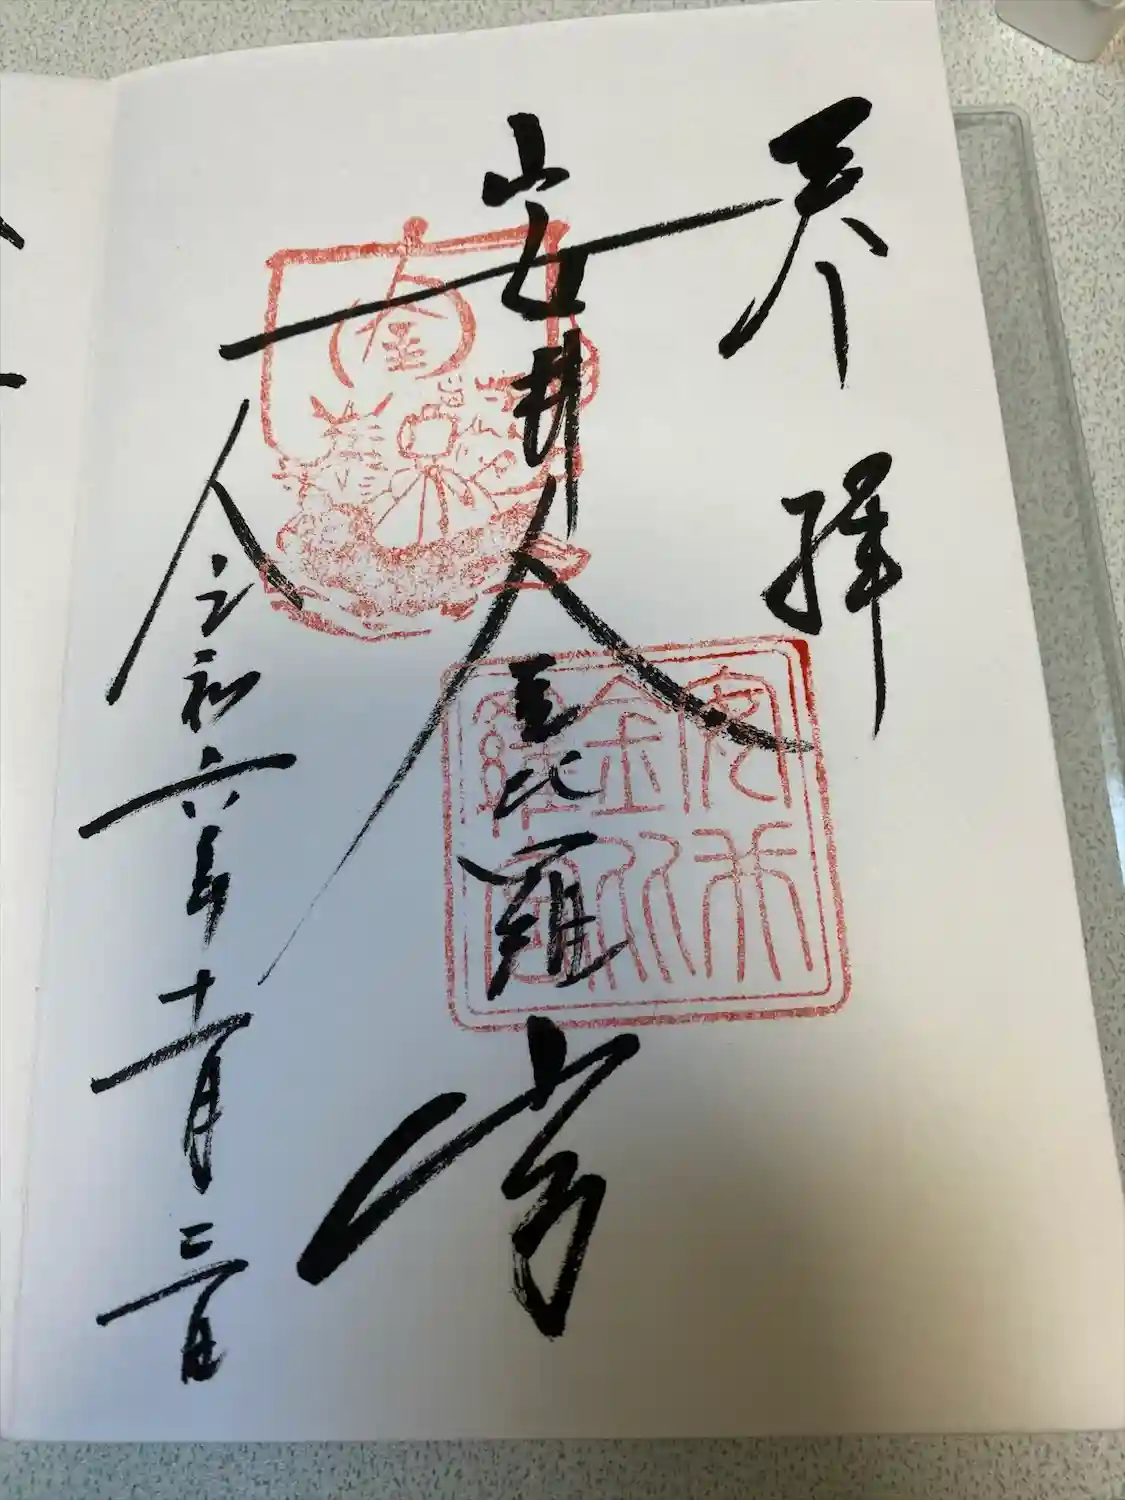 奉拝
安井金比羅宮
令和六年十一月三日
金
安井金比羅宮